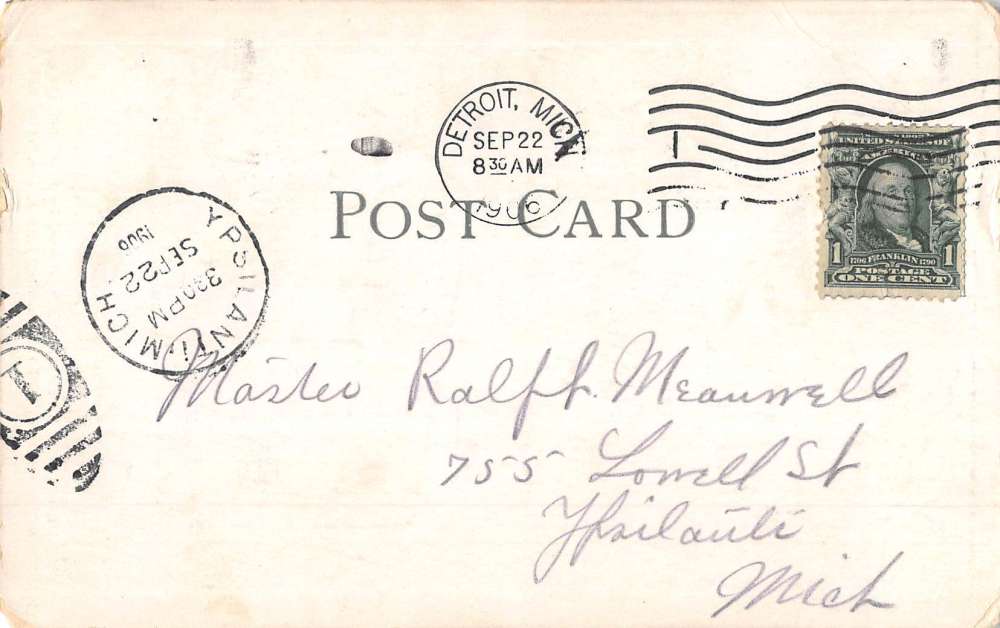 DETROIT, MICH
SEP 22
8 30 AM
1906
UNITED STATES OF
AMERICA
1 1706 FRANKLIN 1790 1
POSTAGE
ONE CENT
POST CARD
YPSILANTI, MICH
330 PM
SEP 22
1906
1
Master Ralph Meanwell
755 Lowell St
Ypsilanti
Mich